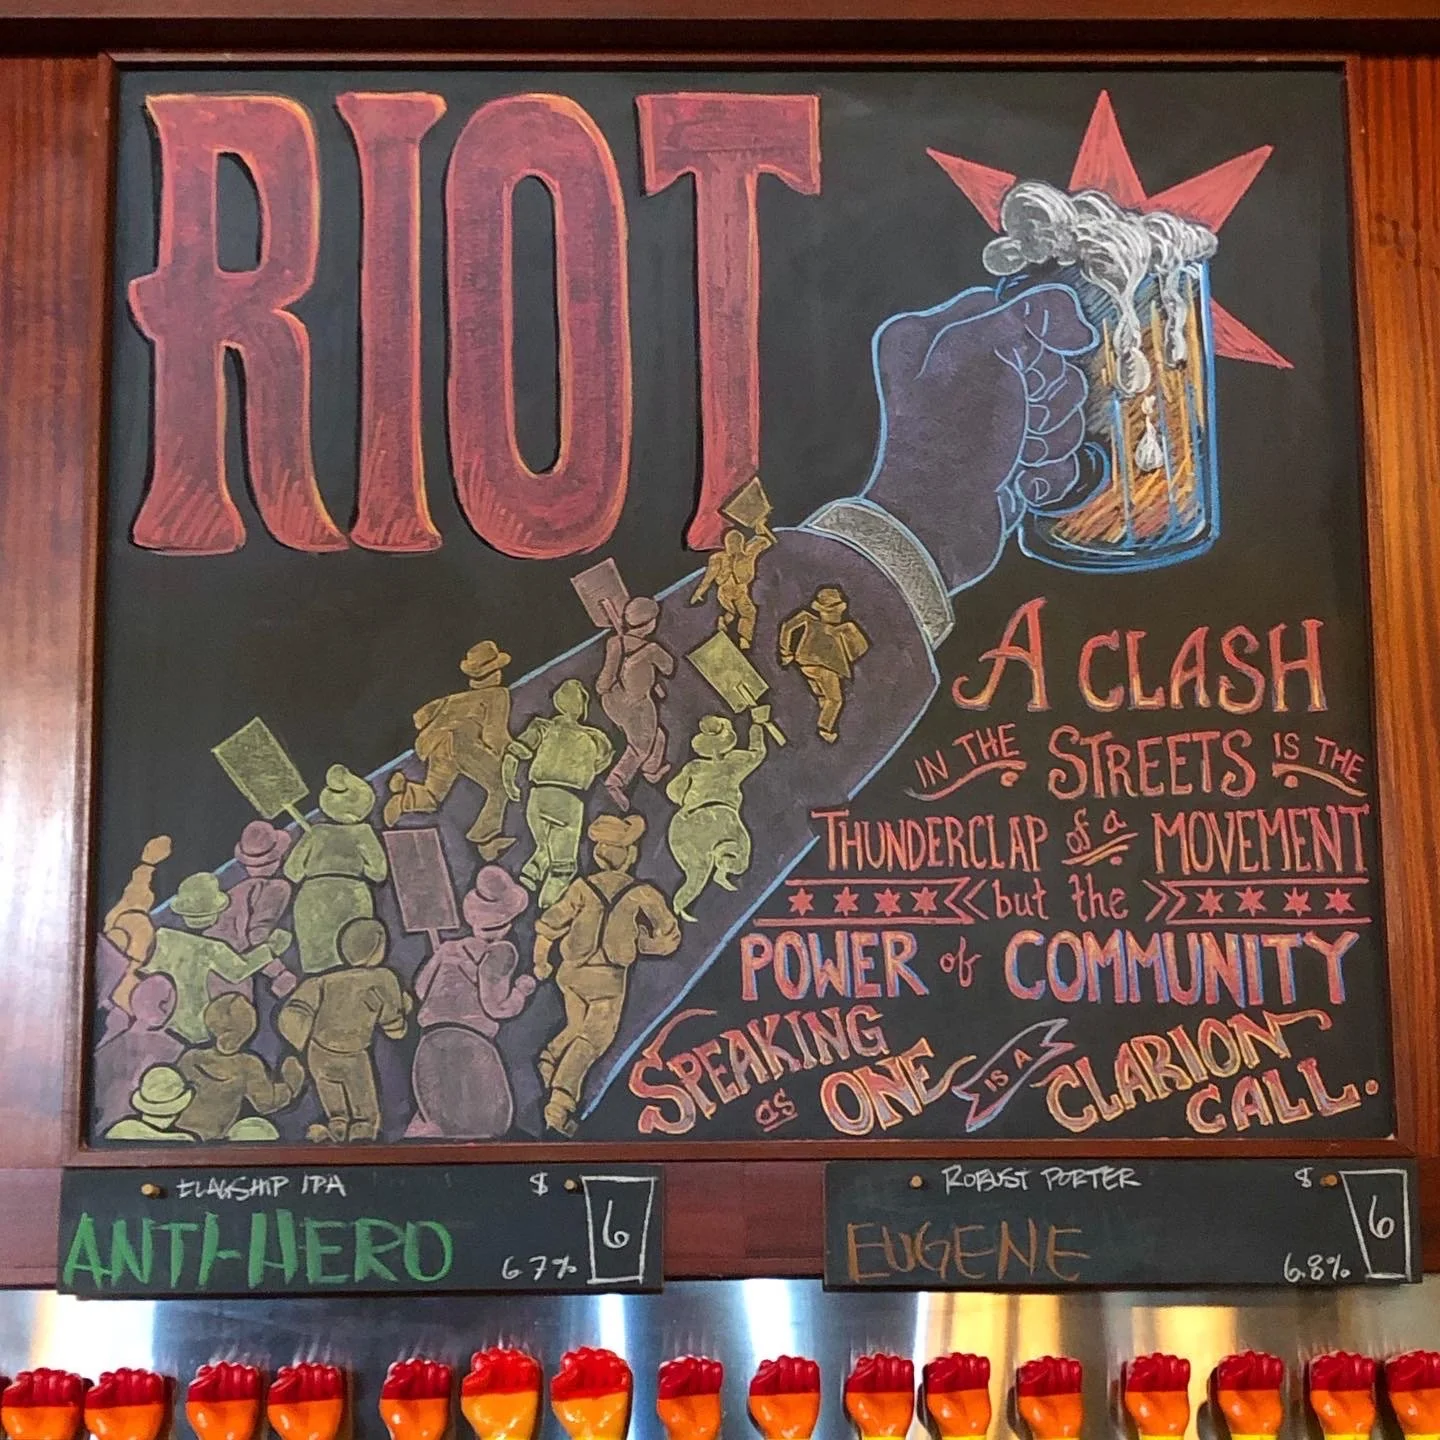 RIOT
A CLASH
IN THE STREETS IS THE
THUNDERCLAP of a MOVEMENT
but the
POWER of COMMUNITY
SPEAKING
as ONE IS A CLARION
CALL.
FLAGSHIP IPA $ 6
ANTI-HERO 6.7%
ROBUST PORTER $ 6
EUGENE 6.8%